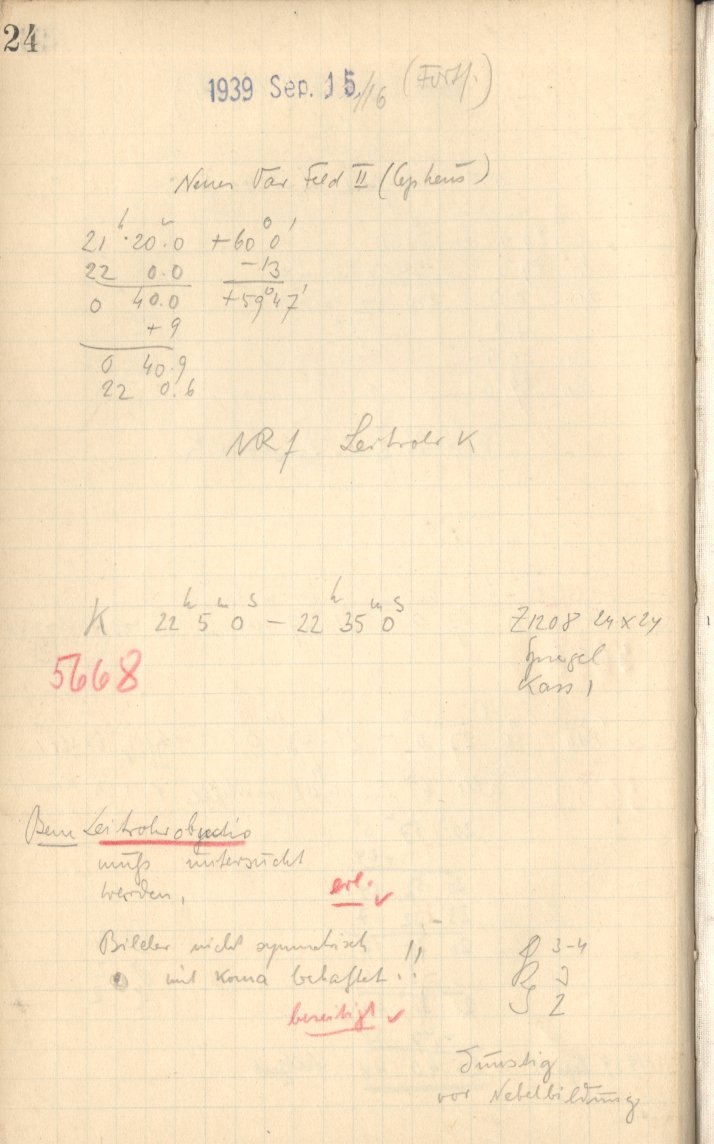 24
1939 Sep. 15/16 (Forts.)
Neues Var Feld II (Cepheus)
21ʰ 20ᵐ.0 +60° 0'
22 0.0 -13
0 40.0 +59° 47'
+9
0 40.9
22 0.6
Leitrohr K
K 22ʰ 5ᵐ 0ˢ - 22ʰ 35ᵐ 0ˢ Z1208 24x24
5668 Spiegel
Kass 1
Bem Leitrohrobjectiv
muß untersucht
werden,
erl. ✓
Bilder nicht symmetrisch
mit Koma behaftet !!
beseitigt ✓
3-4
R 3
S 2
Dunstig
vor Nebelbildung